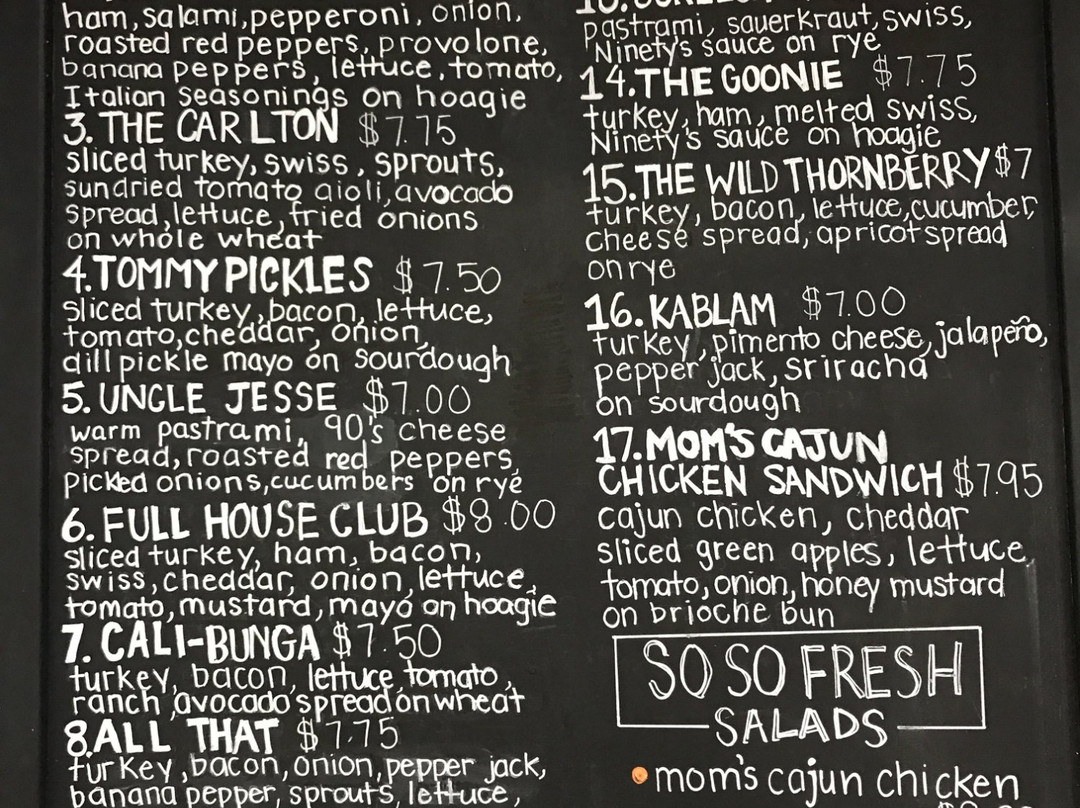 ham, salami, pepperoni, onion,
roasted red peppers, provolone,
banana peppers, lettuce, tomato,
Italian seasonings on hoagie
3. THE CARLTON $7.75
sliced turkey, swiss, sprouts,
sundried tomato aioli, avocado
spread, lettuce, fried onions
on whole wheat
4. TOMMY PICKLES $7.50
sliced turkey, bacon, lettuce,
tomato, cheddar, onion,
dill pickle mayo on sourdough
5. UNCLE JESSE $7.00
warm pastrami, 90's cheese
spread, roasted red peppers,
pickled onions, cucumbers on rye
6. FULL HOUSE CLUB $8.00
sliced turkey, ham, bacon,
swiss, cheddar, onion, lettuce,
tomato, mustard, mayo on hoagie
7. CALI-BUNGA $7.50
turkey, bacon, lettuce, tomato,
ranch, avocado spread on wheat
8. ALL THAT $7.75
turkey, bacon, onion, pepper jack,
banana pepper, sprouts, lettuce,
pastrami, sauerkraut, swiss,
Ninety's sauce on rye
14. THE GOONIE $7.75
turkey, ham, melted swiss,
Ninety's sauce on hoagie
15. THE WILD THORNBERRY $7
turkey, bacon, lettuce, cucumber,
cheese spread, apricot spread
on rye
16. KABLAM $7.00
turkey, pimento cheese, jalapeño,
pepper jack, sriracha
on sourdough
17. MOM'S CAJUN
CHICKEN SANDWICH $7.95
cajun chicken, cheddar
sliced green apples, lettuce,
tomato, onion, honey mustard
on brioche bun
SO SO FRESH
SALADS
mom's cajun chicken